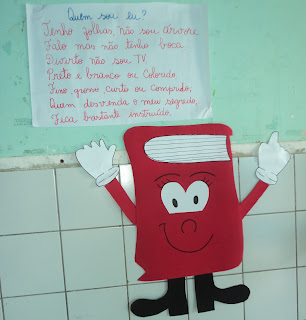 Quem sou eu?
Tenho folhas não sou árvore
Falo mas não tenho boca
Divirto não sou TV
Preto e branco ou Colorido.
Fino, grosso, curto ou comprido,
Quem desvenda o meu segredo,
Fica bastante instruído.